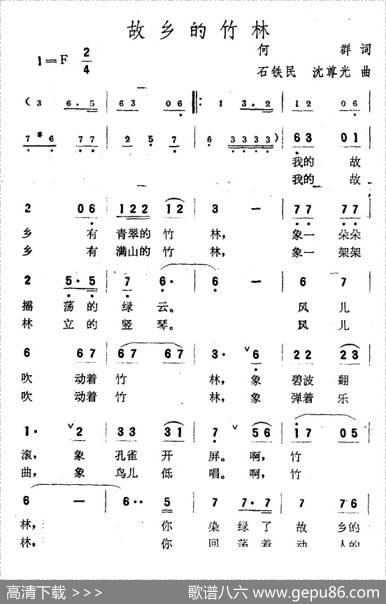 故乡的竹林
1=F 2/4
何 群 词
石铁民 沈尊光 曲
(3 6·5 | 63 06 |: 1 3·2 | 12 06 |
7#6 77 | 2 5 7 | 6 3333) | 63 01 |
我的 故
我的 故
2 06 | 122 12 | 3 — | 77 77 |
乡 有 青翠的 竹 林， 象一 朵朵
乡 有 满山的 竹 林， 象一 架架
2 5·5 | 7 6· | 6 — | 6 7 |
摇 荡的 绿 云。 风 儿
林 立的 竖 琴。 风 儿
6 67 | 67 67 | 3· 6 | 22 23 |
吹 动着 竹 林， 象 碧波 翻
吹 动着 竹 林， 象 弹着 乐
1· 2 | 33 31 | 7 56 | 17 05 |
滚， 象 孔雀 开 屏。 啊， 竹
曲， 象 鸟儿 低 唱。 啊， 竹
6 — | 6·· 5 | 7 7·7 | 7 76 |
林， 你 染 绿了 故 乡的
林， 你 回 荡着 动 人的
高清下载 > >> 歌谱八六 www.gepu86.com